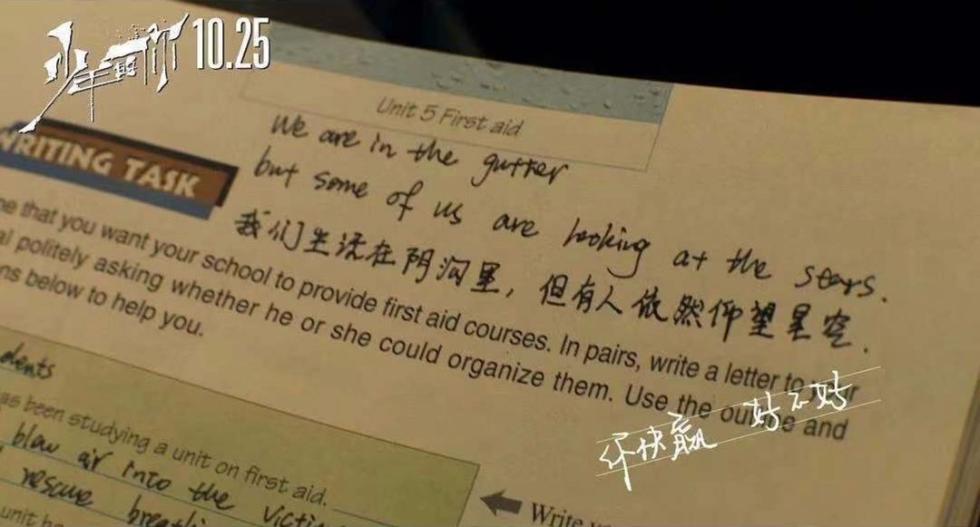 少年的你 10.25
Unit 5 First aid
We are in the gutter
but some of us are looking at the stars.
我们生活在阴沟里，但有人依然仰望星空.
WRITING TASK
ne that you want your school to provide first aid courses. In pairs, write a letter to your
al politely asking whether he or she could organize them. Use the outline and
ns below to help you.
你快赢 好不好
dents
as been studying a unit on first aid.
blow air into the victi
rescue breathi
unit h
Write y